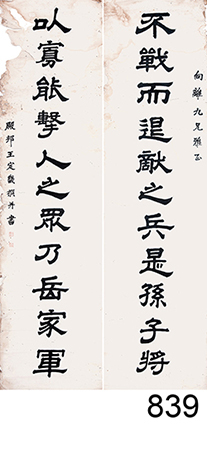 向離九兄雅正
不戰而退敵之兵是孫子將
以寡能擊人之眾乃岳家軍
王定
撰并書
839